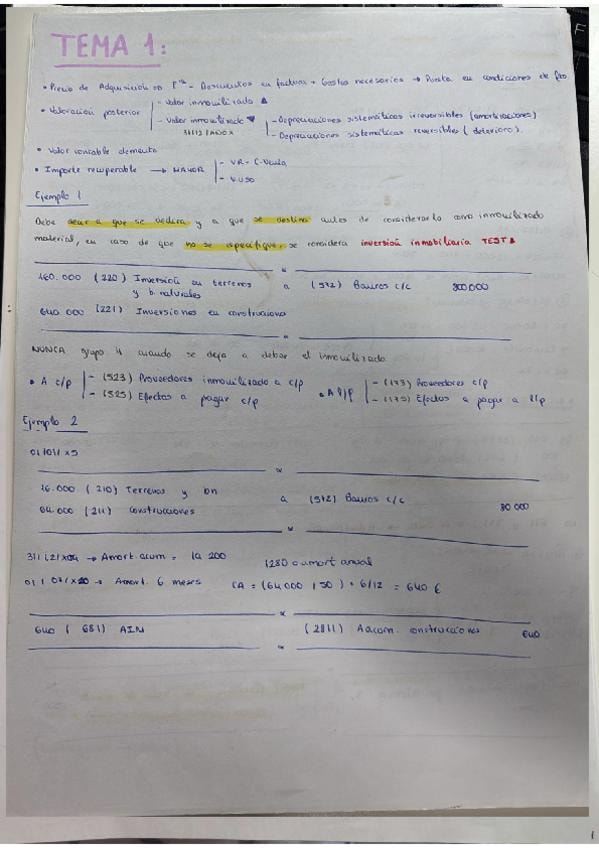 TEMA 1:
• Precio de Adquisición → Pcio - Descuentos en factura + Gastos necesarios → Puesta en condiciones de fto.
• Valoración posterior - Valor inmovilizado ▲
- Valor inmovilizado ▼ - Depreciaciones sistemáticas irreversibles (amortizaciones)
31/12/AÑO X - Depreciaciones sistemáticas reversibles (deterioro).
• Valor contable elemento
• Importe recuperable → MAYOR - VR - C.Venta
- V.USO
Ejemplo 1
Debe decir a que se dedica y a que se destina antes de considerarlo como inmovilizado
material, en caso de que no se especifique, se considera inversión inmobiliaria TEST
160.000 (220) Inversión en terrenos a (572) Bancos c/c 800.000
y b. naturales
640.000 (221) Inversiones en construcciones
NUNCA grupo 4 cuando se deja a deber el inmovilizado
• A c/p - (523) Proveedores inmovilizado a c/p • A l/p - (173) Proveedores c/p
- (525) Efectos a pagar c/p - (175) Efectos a pagar a l/p
Ejemplo 2
01/01/x5
16.000 (210) Terrenos y bn a (572) Bancos c/c 80.000
64.000 (211) construcciones
→ Amort. acum =
1280 amort anual
→ Amort. 6 meses CA = (64.000 / 50) · 6/12 = 640 €
640 (681) AIM (2811) Aacum. construcciones 640
1